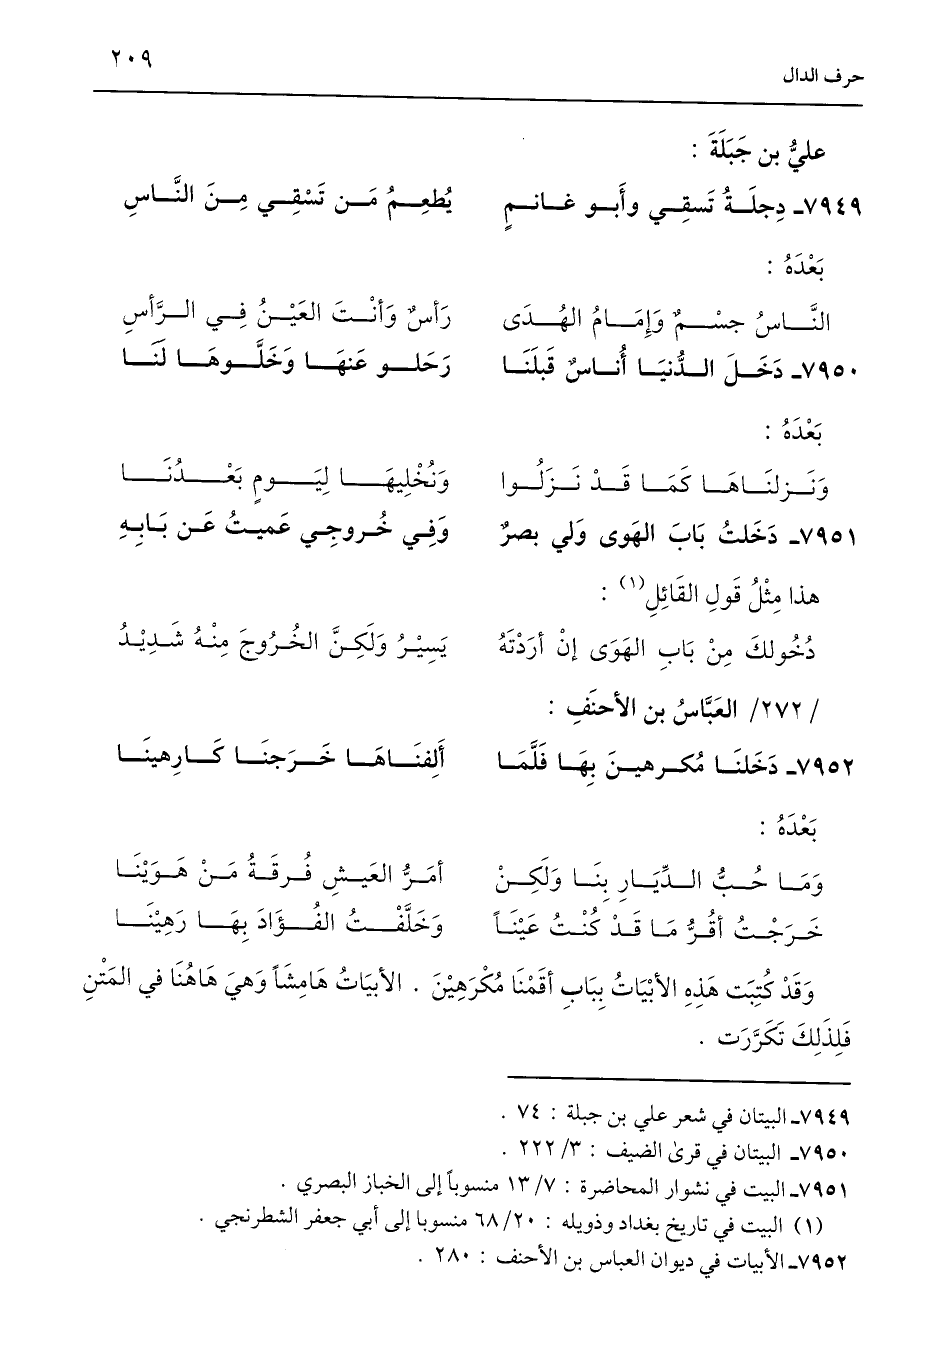 ٢٠٩
حرف الدال
عليُّ بن جَبَلَةَ :
٧٩٤٩ـ دِجلَةُ تَسقِي وأَبو غانمٍ يُطعِمُ مَن تَسْقِي مِنَ النَّاسِ
بَعْدَهُ :
النَّاسُ جسْمٌ وَإِمَامُ الهُدَى رَأسٌ وَأنْتَ العَيْنُ فِي الرَّأسِ
٧٩٥٠ـ دَخَلَ الدُّنيَا أُناسٌ قَبلَنَا رَحَلو عَنهَا وَخَلَّوهَا لَنَا
بَعْدَهُ :
وَنَزلنَاهَا كَمَا قَدْ نَزَلُوا وَنُخْلِيهَا لِيَومٍ بَعْدُنَا
٧٩٥١ـ دَخَلتُ بَابَ الهَوى وَلي بصرٌ وَفِي خُروجِي عَميتُ عَن بَابِهِ
هذا مِثْلُ قَولِ القَائِلِ(١) :
دُخُولكَ مِنْ بَابِ الهَوَى إنْ أرَدْتَهُ يَسِيْرُ وَلَكِنَّ الخُرُوجَ مِنْهُ شَدِيْدُ
/٢٧٢/ العَبَّاسُ بن الأحنَفِ :
٧٩٥٢ـ دَخَلنَا مُكرهينَ بِهَا فَلَّمَا أَلِفنَاهَا خَرَجنَا كَارِهينَا
بَعْدَهُ :
وَمَا حُبُّ الدِّيَارِ بِنَا وَلَكِنْ أمَرُّ العَيشِ فُرقَةُ مَنْ هَوَيْنَا
خَرَجْتُ أقُرُّ مَا قَدْ كُنْتُ عَيْنَاً وَخَلَّفْتُ الفُؤَادَ بِهَا رَهِيْنَا
وَقَدْ كُتِبَت هَذِهِ الأبْيَاتُ بِبَابِ أقَمْنَا مُكْرَهِيْنَ . الأبيَاتُ هَامِشَاً وَهيَ هَاهُنَا في المَتْنِ
فَلِذَلِكَ تَكَرَّرَت .
٧٩٤٩ـ البيتان في شعر علي بن جبلة : ٧٤ .
٧٩٥٠ـ البيتان في قرىٰ الضيف : ٣/ ٢٢٢ .
٧٩٥١ـ البيت في نشوار المحاضرة : ٧/ ١٣ منسوباً إلى الخباز البصري .
(١) البيت في تاريخ بغداد وذويله : ٢٠/ ٦٨ منسوبا إلى أبي جعفر الشطرنجي .
٧٩٥٢ـ الأبيات في ديوان العباس بن الأحنف : ٢٨٠ .